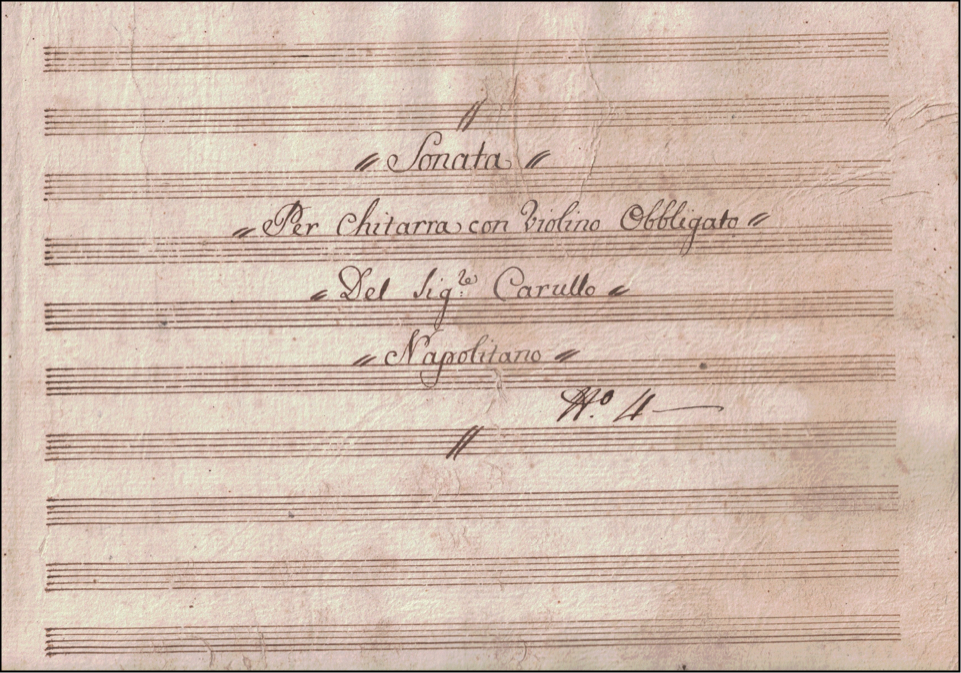 〃 Sonata 〃
〃 Per Chitarra con Violino Obbligato 〃
〃 Del Sig.re Carullo 〃
〃 Napolitano 〃
N.o 4